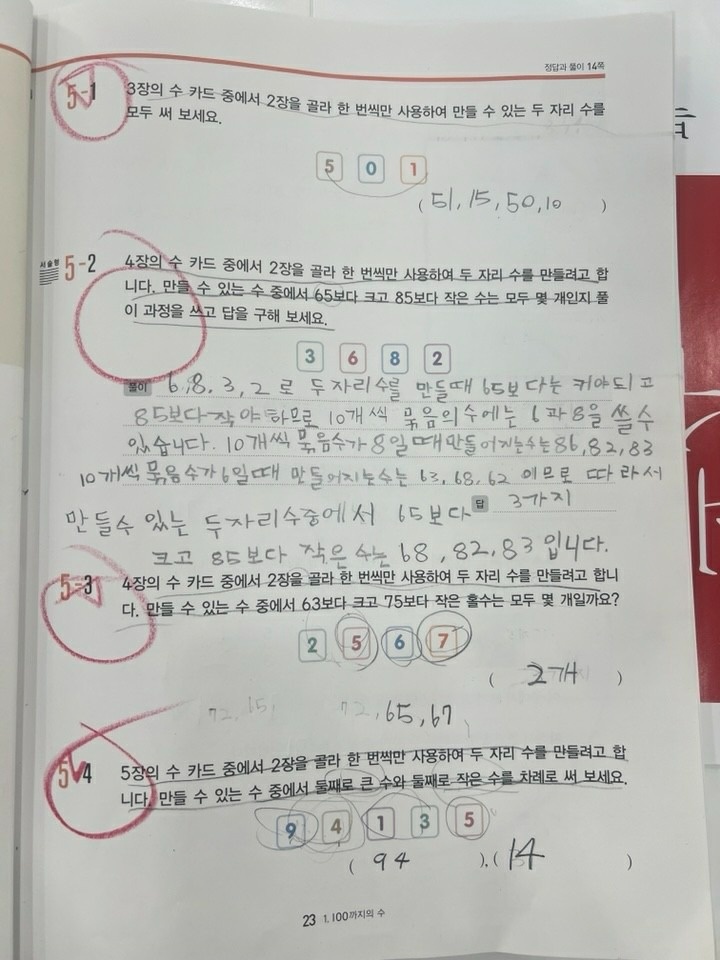 정답과 풀이 14쪽
5-1 3장의 수 카드 중에서 2장을 골라 한 번씩만 사용하여 만들 수 있는 두 자리 수를
모두 써 보세요.
5 0 1
( 51, 15, 50, 10 )
서술형 5-2 4장의 수 카드 중에서 2장을 골라 한 번씩만 사용하여 두 자리 수를 만들려고 합
니다. 만들 수 있는 수 중에서 65보다 크고 85보다 작은 수는 모두 몇 개인지 풀
이 과정을 쓰고 답을 구해 보세요.
3 6 8 2
풀이 6, 8, 3, 2 로 두 자리 수를 만들때 65보다는 커야되고
85보다 작아야 하므로 10개씩 묶음의 수에는 6과 8을 쓸 수
있습니다. 10개씩 묶음수가 8일 때 만들어지는수는 86, 82, 83
10개씩 묶음수가 6일때 만들어지는수는 63, 68, 62 이므로 따라서
만들수 있는 두자리수중에서 65보다 답 3가지
크고 85보다 작은 수는 68, 82, 83 입니다.
5-3 4장의 수 카드 중에서 2장을 골라 한 번씩만 사용하여 두 자리 수를 만들려고 합니
다. 만들 수 있는 수 중에서 63보다 크고 75보다 작은 홀수는 모두 몇 개일까요?
2 5 6 7
( 2개 )
72, 65, 72, 65, 67,
5-4 5장의 수 카드 중에서 2장을 골라 한 번씩만 사용하여 두 자리 수를 만들려고 합
니다. 만들 수 있는 수 중에서 둘째로 큰 수와 둘째로 작은 수를 차례로 써 보세요.
9 4 1 3 5
( 94 ), ( 14 )
23 1. 100까지의 수